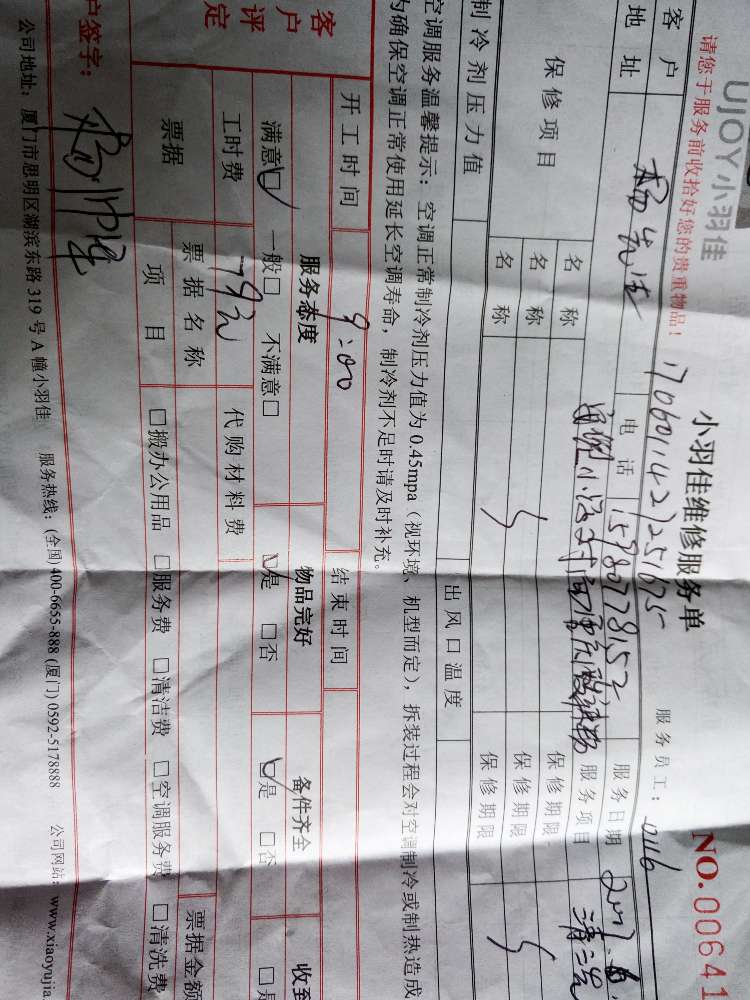 UJOY小羽佳
小羽佳维修服务单
NO.00641
请您于服务前收拾好您的贵重物品!
1706011421251675
服务员工: 0116
客户 杨先生 电话 15980778152 服务日期 2017.6
地址 服务项目 清洗
保修项目 名称 保修期限
名称 保修期限
名称 保修期限
制冷剂压力值 出风口温度
空调服务温馨提示: 空调正常制冷剂压力值为 0.45mpa (视环境、机型而定), 拆装过程会对空调制冷或制热造成
为确保空调正常使用延长空调寿命, 制冷剂不足时请及时补充。
开工时间 9:00 结束时间
客户评定 服务态度 物品完好 备件齐全 收到
满意□ 一般□ 不满意□ □是 □否 □是 □否 □是
工时费 79元 代购材料费
票据 票据名称 票据金额
项目 □搬办公用品 □服务费 □清洁费 □空调服务费 □清洗费
户签字:
公司地址: 厦门市思明区湖滨东路 319 号 A 幢小羽佳 服务热线: (全国) 400-6655-888 (厦门) 0592-5178888 公司网站: www.xiaoyujia